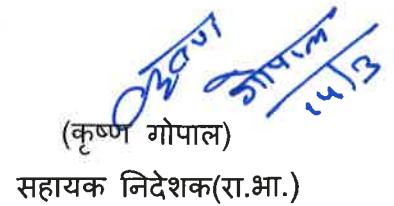 कृष्ण गोपाल 14/3
(कृष्ण गोपाल)
सहायक निदेशक(रा.भा.)